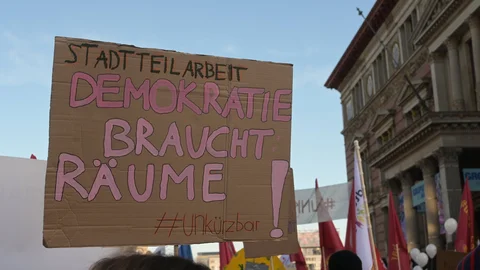 STADTTEILARBEIT
DEMOKRATIE
BRAUCHT
RÄUME!
#unkürzbar